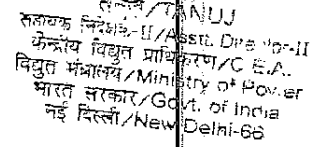 /TANUJ
सहायक निदेशक-II/Asstt. Director-II
केन्द्रीय विद्युत प्राधिकरण/C.E.A.
विद्युत मंत्रालय/Ministry of Power
भारत सरकार/Govt. of India
नई दिल्ली/New Delhi-66